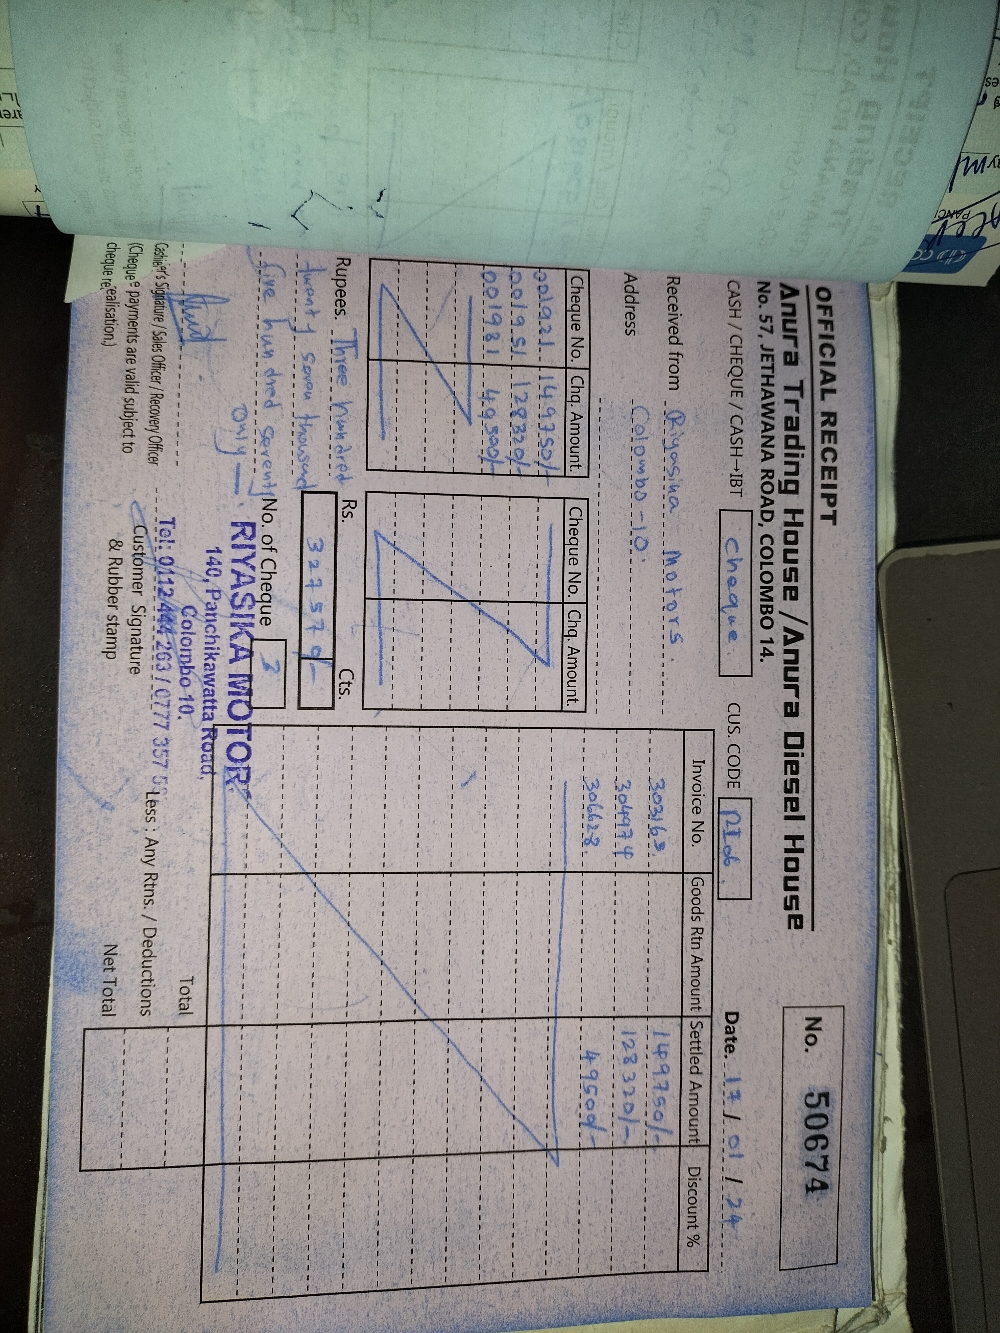 OFFICIAL RECEIPT
Anura Trading House / Anura Diesel House
No. 57, JETHAWANA ROAD, COLOMBO 14.
No. 50674
CASH / CHEQUE / CASH→IBT cheque CUS. CODE RI06 Date. 17 / 01 / 24
Received from Riyasika Motors.
Address Colombo-10.
Cheque No. Chq. Amount. Cheque No. Chq. Amount.
001921 149750/-
001951 128320/-
001981 49500/-
Invoice No. Goods Rtn Amount Settled Amount Discount %
303163. 149750/-
304974 128320/-
306628. 49500/-
Rupees. Three hundred
twenty seven thousand
five hundred seventy
only
Rs. Cts.
327570/-
No. of Cheque 3
RIYASIKA MOTOR
140, Panchikawatta Road,
Colombo 10.
Tel: 0112 444 263 / 0777 357
Cashier's Signature / Sales Officer / Recovery Officer
(Cheque payments are valid subject to
cheque realisation.)
Customer Signature
& Rubber stamp
Total
Less : Any Rtns. / Deductions
Net Total